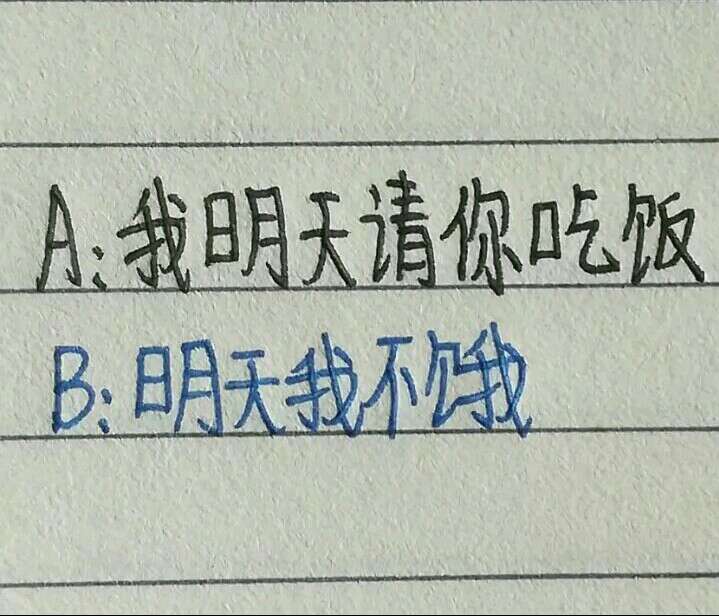 A:我明天请你吃饭
B:明天我不饿